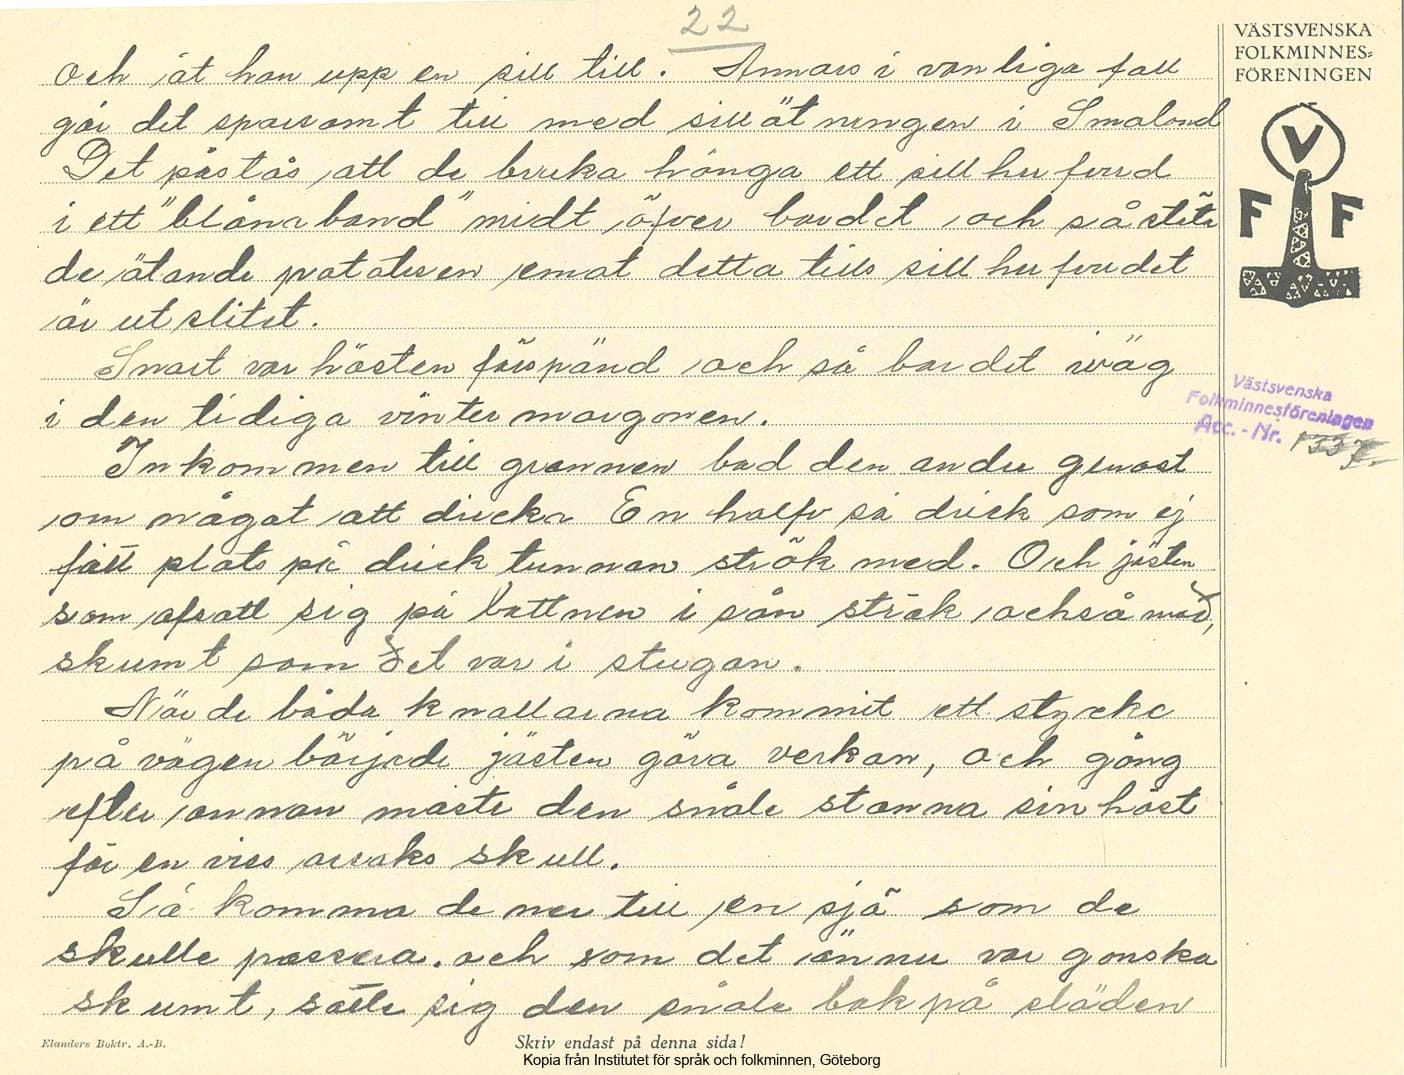 22
VÄSTSVENSKA
FOLKMINNES-
FÖRENINGEN
och åt han upp en sill till. Annars i vanliga fall
går det sparsamt till med sillätningen i Smaland
Det påstås att de bruka hänga ett sillhufvud
i ett "blånaband" midt öfver bordet och så stöta
de ätande potatisen emot detta tills sillhufvudet
är utslitet.
Snart var hästen förspänd och så bar det iväg
i den tidiga vintermorgonen.
Inkommen till grannen bad den andre genast
om något att dricka En halfv så drick som ej
fått plats på dricktunnan strök med. Och jästen
som afsatt sig på bottnen i sån strök också med,
skumt som det var i stugan.
När de båda knallarna kommit ett stycke
på vägen började jästen göra verkan, och gång
efter annan måste den snåle stanna sin häst
för en viss orsaks skull.
Så komma de ner till en sjö som de
skulle passera. och som det ännu var ganska
skumt, satte sig den snåle bakpå släden
V
F F
Västsvenska
Folkminnesföreningen
Acc. - Nr. 1337.
Elanders Boktr. A.-B.
Skriv endast på denna sida!
Kopia från Institutet för språk och folkminnen, Göteborg